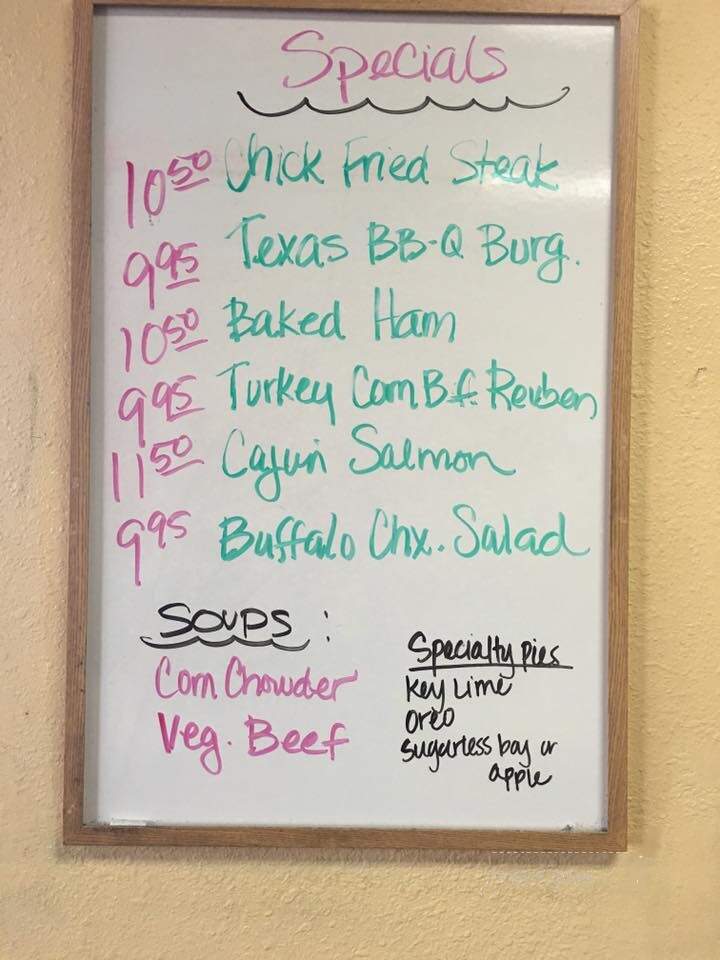 Specials
10 50 Chick Fried Steak
9 95 Texas BB-Q Burg.
10 50 Baked Ham
9 95 Turkey Corn Bf. Reuben
11 50 Cajun Salmon
9 95 Buffalo Chx. Salad
Soups :
Corn Chowder
Veg. Beef
Specialty pies
Key Lime
Oreo
Sugarless boy or
apple